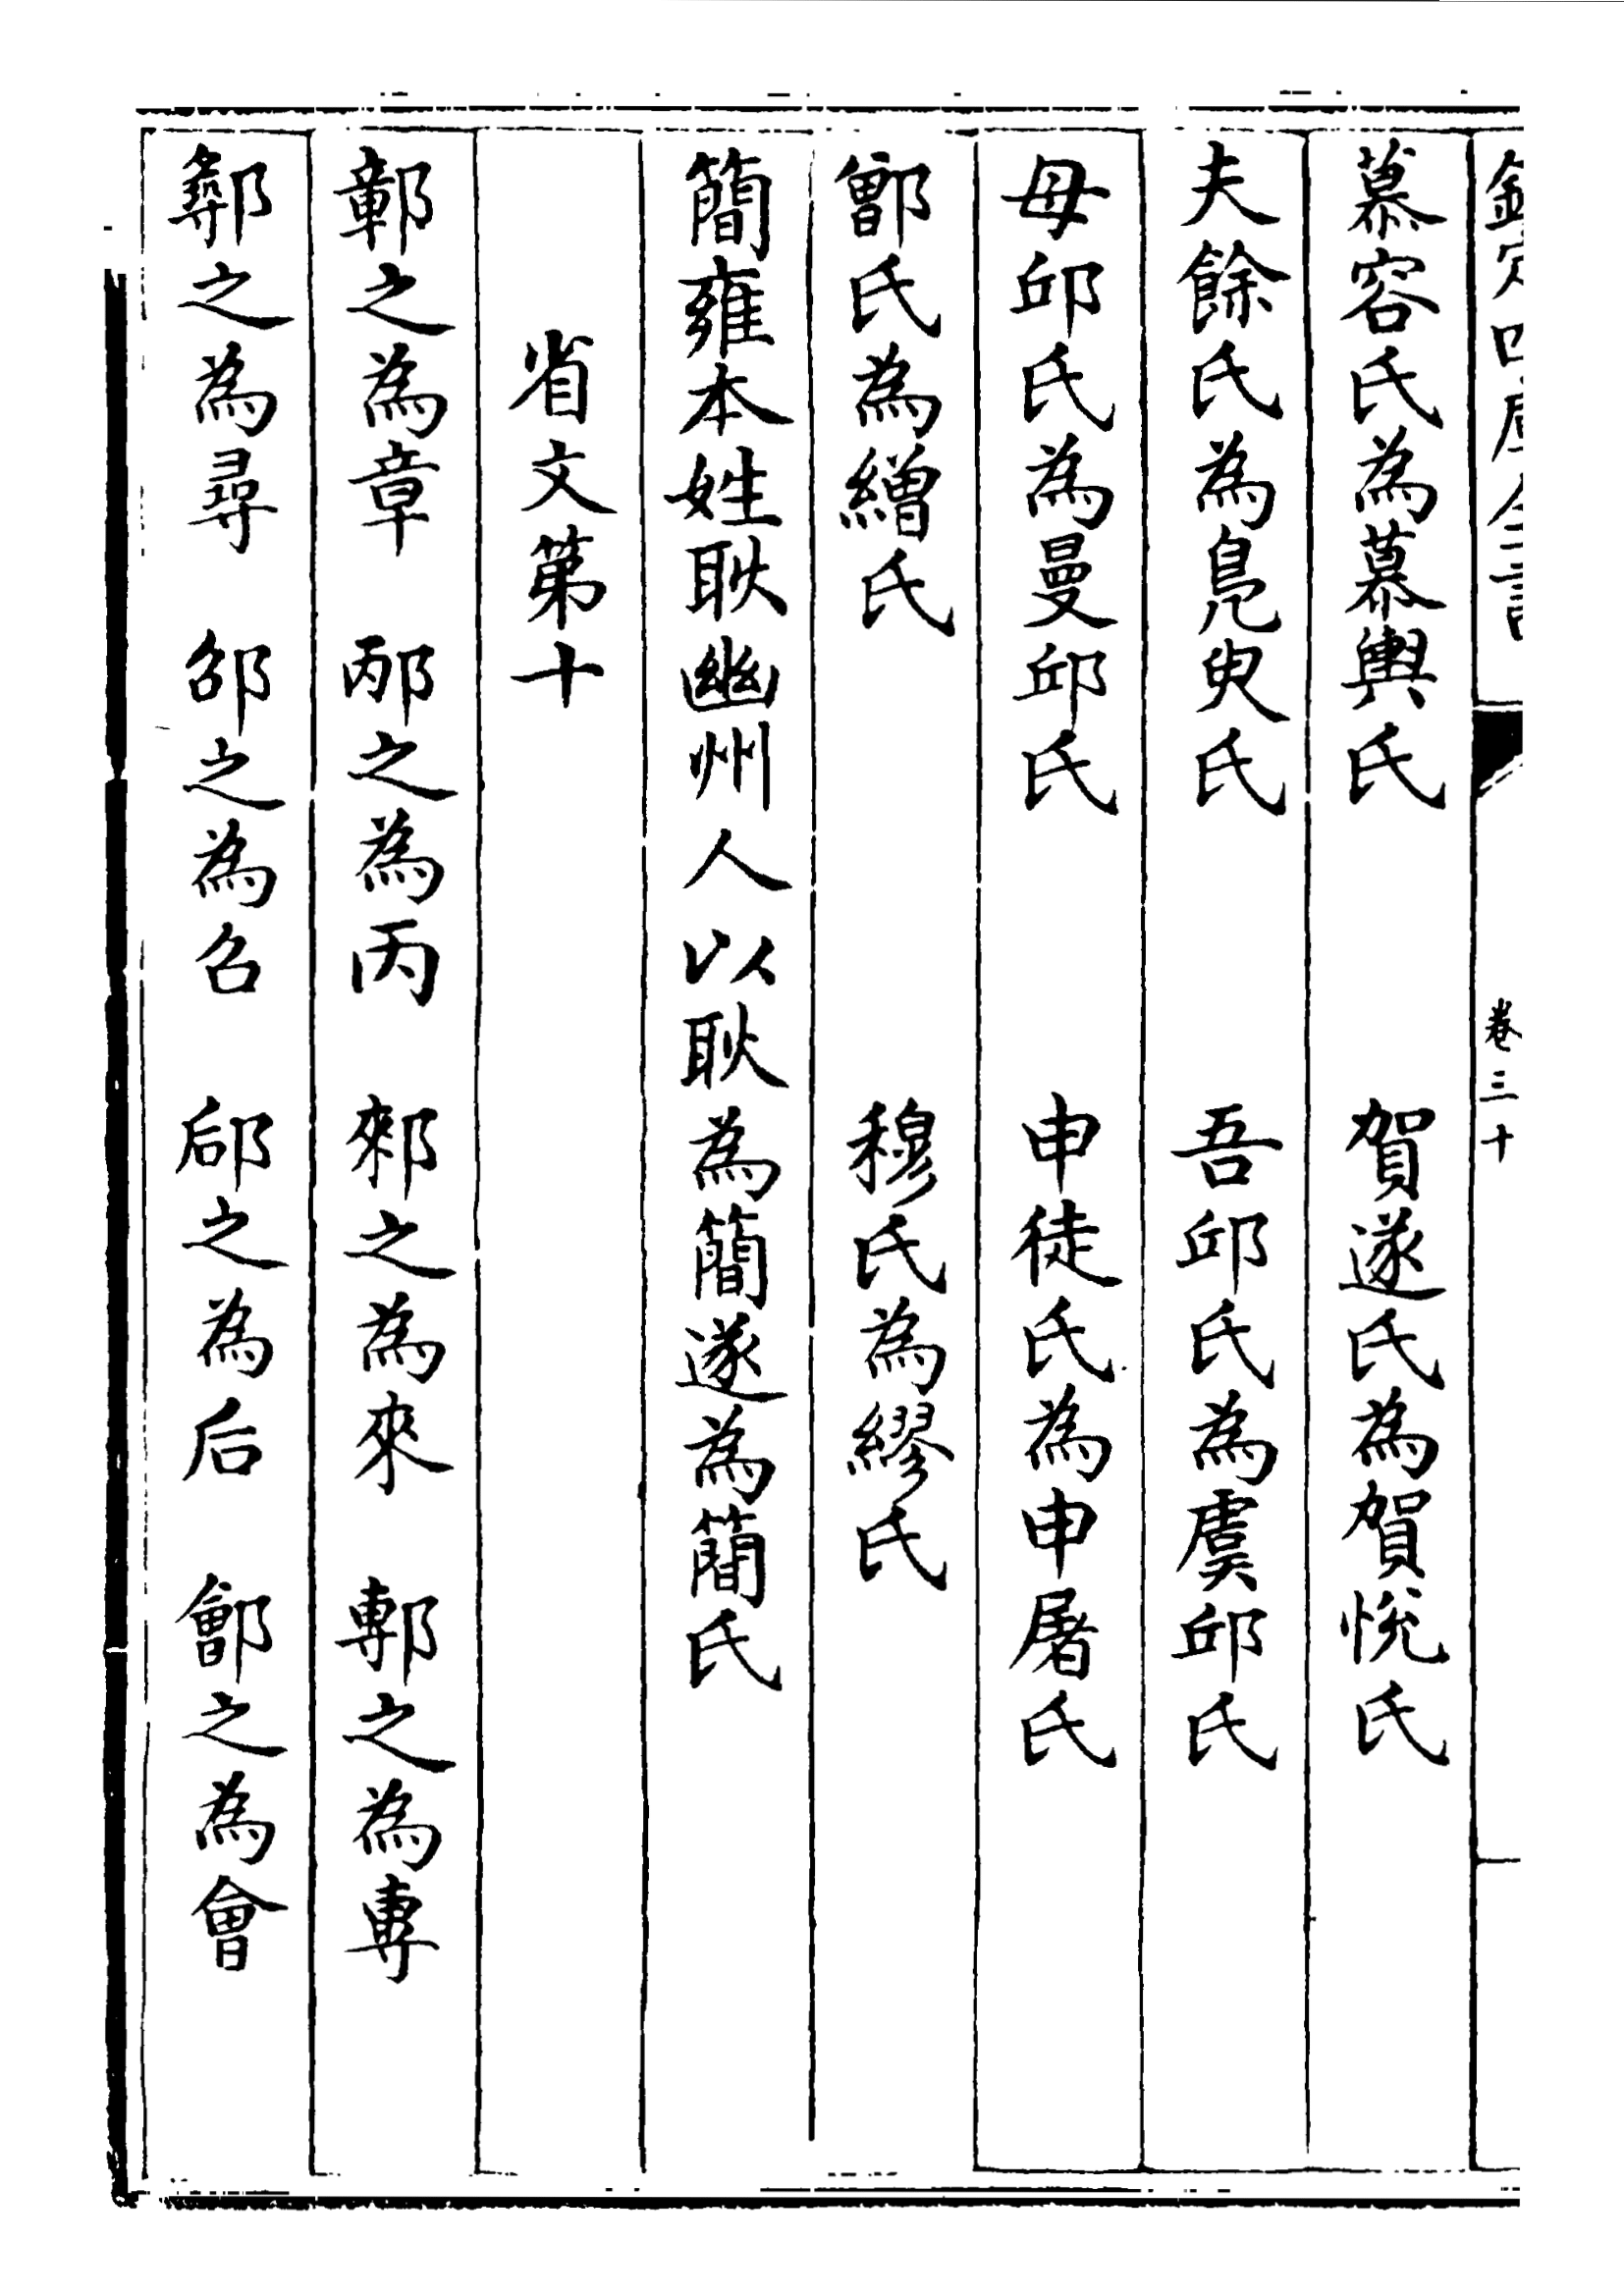 欽定四庫全書
卷三十
慕容氏為慕輿氏　賀遂氏為賀悅氏
夫餘氏為鳧臾氏　吾邱氏為虞邱氏
毋邱氏為曼邱氏　申徒氏為申屠氏
鄫氏為繒氏　穆氏為繆氏
簡雍本姓耿幽州人以耿為簡遂為簡氏
省文第十
鄣之為章　邴之為丙　郲之為來　鄟之為專
鄩之為尋　邵之為召　郈之為后　鄶之為會